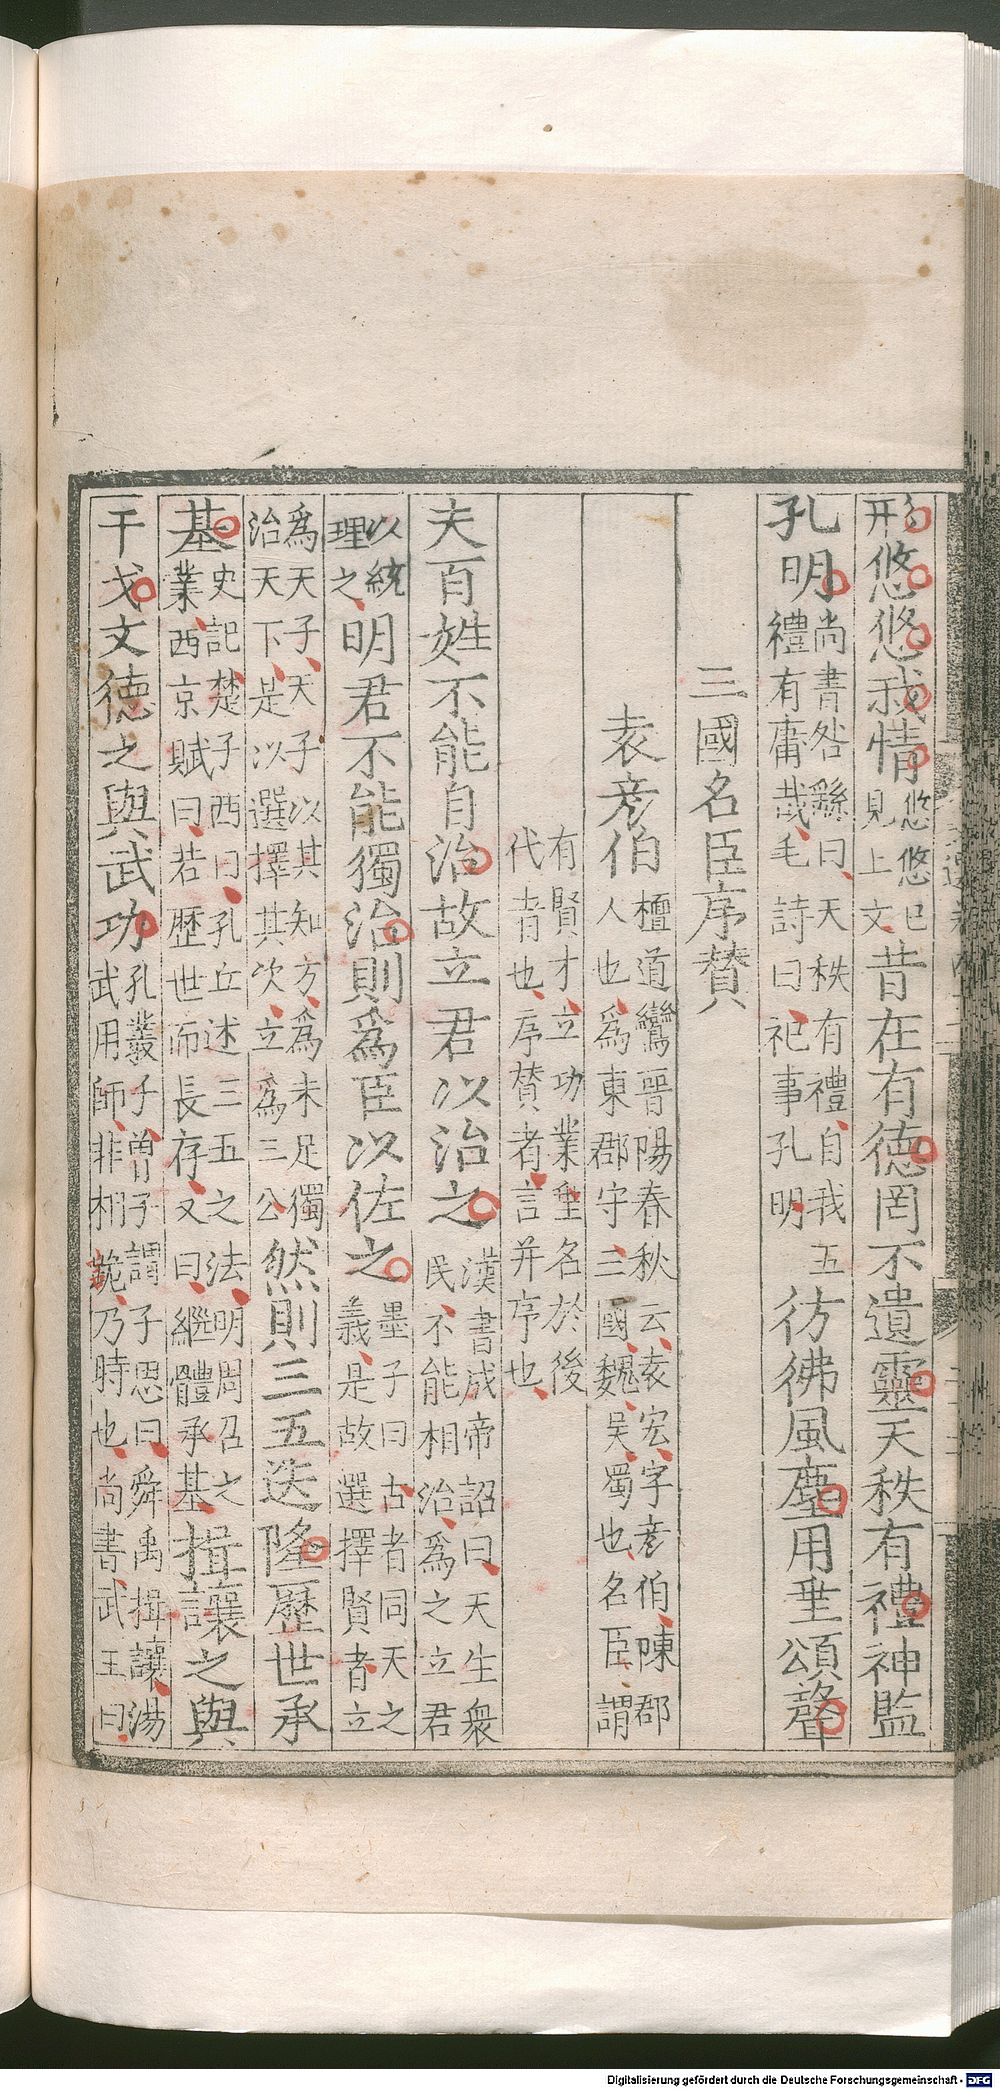 形悠悠我情悠悠已見上文昔在有德罔不遺靈天秩有禮神監
孔明尚書咎繇曰、天秩有禮、自我五禮有庸哉、毛詩曰、祀事孔明、彷彿風塵用垂頌聲
三國名臣序賛
袁彦伯檀道鸞晉陽春秋云、袁宏、字彦伯、陳郡人也、為東郡守、三國、魏、吳、蜀也、名臣、謂
有賢才、立功業、垂名於後代者也、序賛者、言并序也、
夫百姓不能自治故立君以治之漢書成帝詔曰、天生衆民、不能相治、為之立君
以統理之、明君不能獨治則為臣以佐之墨子曰、古者同天之義、是故選擇賢者、立
為天子、天子以其知方、為未足獨治天下、是以選擇其次、立為三公、然則三五迭隆歷世承
基史記、楚子西曰、孔丘述三五之法、明周召之業、西京賦曰、若歷世而長存、又曰、繼體承基、揖讓之與
干戈文德之與武功孔叢子、曾子謂子思曰、舜禹揖讓、湯武用師、非相詭、乃時也、尚書、武王曰、
Digitalisierung gefördert durch die Deutsche Forschungsgemeinschaft - DFG